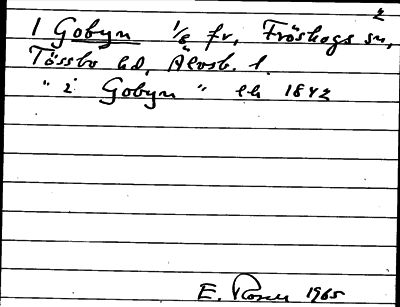 2
1 Gobyn 1/8 fr, Fröskogs sn,
Tössbo hd, Älvsb. l.
" i Gobyn " lh 1842
E. Rosell 1965